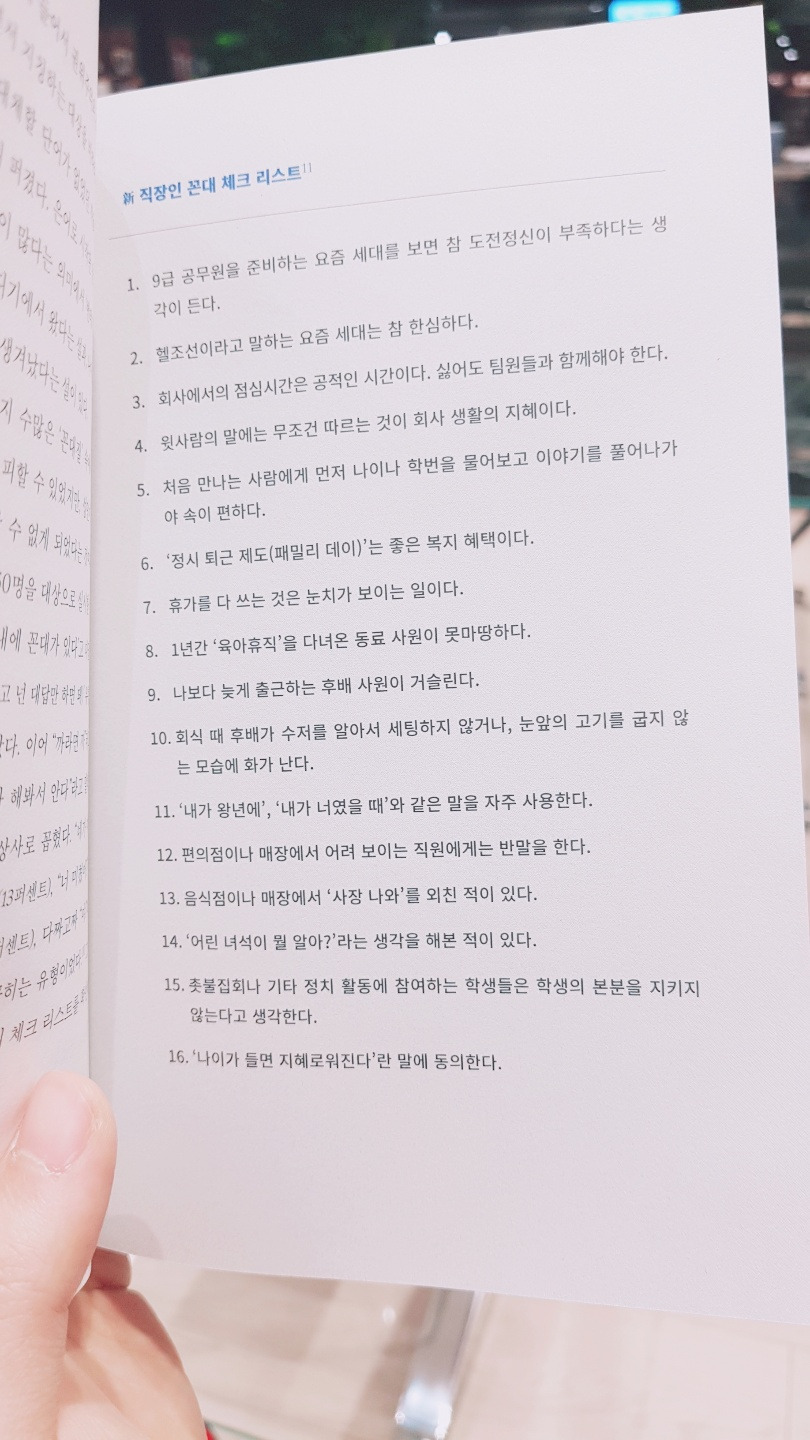 지 수많은 '꼰대질'
피할 수 있었지만
수 없게 되었다는
50명을 대상으로
내에 꼰대가 있다'고
고 넌 대답만 하면 돼
았다. 이어 "까라면
해봐서 안다"라고
상사로 꼽혔다.
13퍼센트), "너 미쳤
퍼센트), 다짜고짜
유형이었다
체크 리스트를
新 직장인 꼰대 체크 리스트11
1. 9급 공무원을 준비하는 요즘 세대를 보면 참 도전정신이 부족하다는 생
각이 든다.
2. 헬조선이라고 말하는 요즘 세대는 참 한심하다.
3. 회사에서의 점심시간은 공적인 시간이다. 싫어도 팀원들과 함께해야 한다.
4. 윗사람의 말에는 무조건 따르는 것이 회사 생활의 지혜이다.
5. 처음 만나는 사람에게 먼저 나이나 학번을 물어보고 이야기를 풀어나가
야 속이 편하다.
6. '정시 퇴근 제도(패밀리 데이)'는 좋은 복지 혜택이다.
7. 휴가를 다 쓰는 것은 눈치가 보이는 일이다.
8. 1년간 '육아휴직'을 다녀온 동료 사원이 못마땅하다.
9. 나보다 늦게 출근하는 후배 사원이 거슬린다.
10. 회식 때 후배가 수저를 알아서 세팅하지 않거나, 눈앞의 고기를 굽지 않
는 모습에 화가 난다.
11. '내가 왕년에', '내가 너였을 때'와 같은 말을 자주 사용한다.
12. 편의점이나 매장에서 어려 보이는 직원에게는 반말을 한다.
13. 음식점이나 매장에서 '사장 나와'를 외친 적이 있다.
14. '어린 녀석이 뭘 알아?'라는 생각을 해본 적이 있다.
15. 촛불집회나 기타 정치 활동에 참여하는 학생들은 학생의 본분을 지키지
않는다고 생각한다.
16. '나이가 들면 지혜로워진다'란 말에 동의한다.